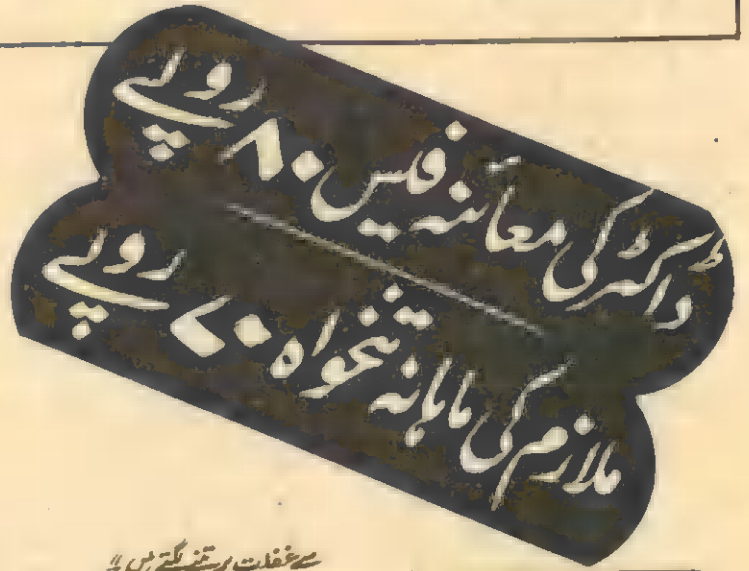 ڈاکٹر کی معائنہ فیس ۸۰ روپے
ملازم کی ماہانہ تنخواہ ۷۰ روپے
سے غفلت برتنے لگتے ہیں"